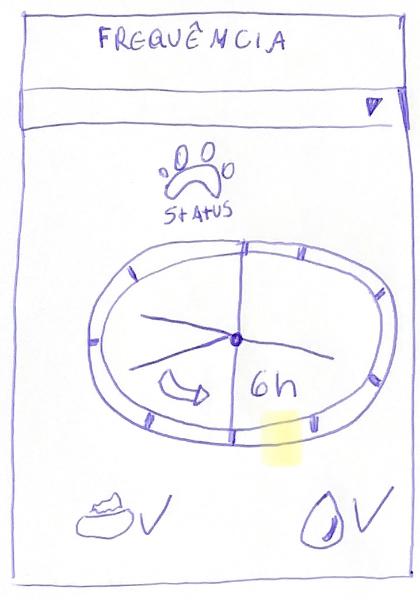 FREQUÊNCIA
STATUS
6h